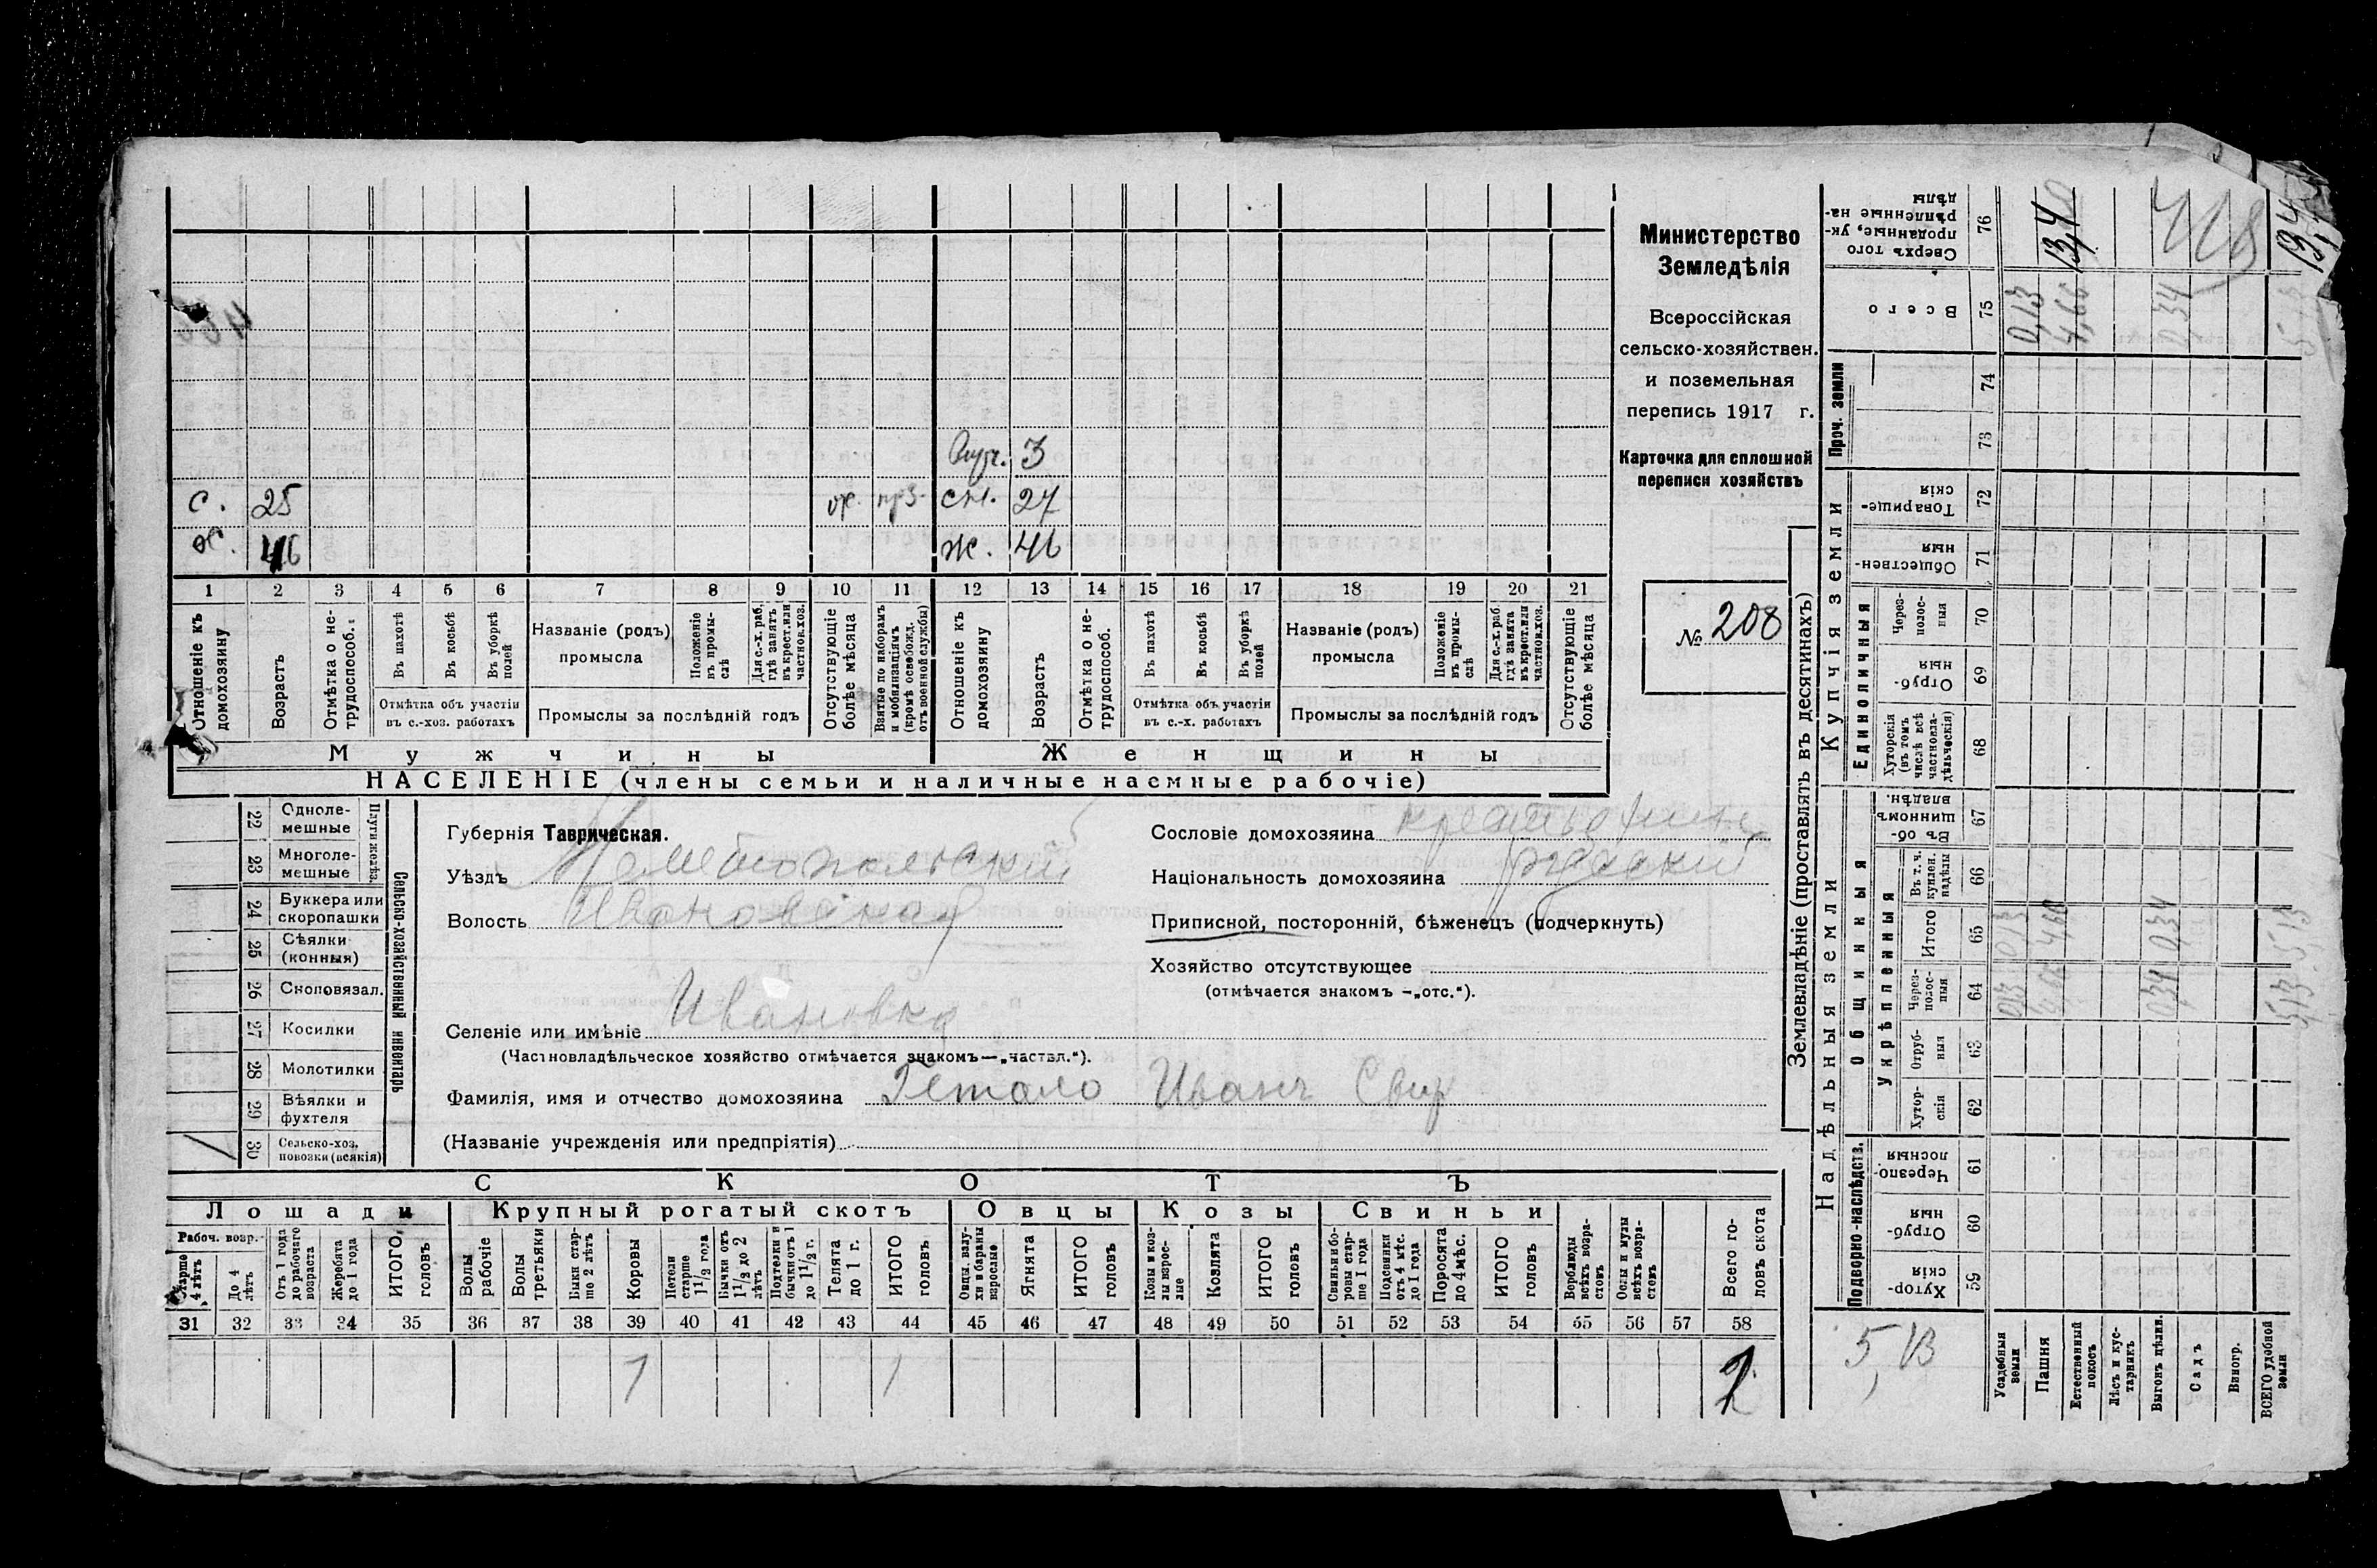 Министерство
Земледѣлія
Всероссійская
сельско-хозяйствен.
и поземельная
перепись 1917 г.
Карточка для сплошной
переписи хозяйствъ
№ 208
Внуч. 3
с. 25 пр3. сн. 27
х. 46 ж. 46
1 2 3 4 5 6 7 8 9 10 11 12 13 14 15 16 17 18 19 20 21
Отношеніе къ домохозяину
Возрастъ
Отмѣтка о не-трудоспособ.
Въ пахотѣ
Въ косьбѣ
Въ уборкѣ полей
Отмѣтка объ участіи въ с.-хоз. работахъ
Названіе (родъ) промысла
Положеніе въ промы-слѣ
Для с.-х. раб, гдѣ занятъ въ крест. или частнов. хоз.
Промыслы за послѣдній годъ
Отсутствующіе болѣе мѣсяца
Взятые по наборамъ и мобилизаціямъ (кромѣ освобожд. отъ военной службы)
Отношеніе къ домохозяину
Возрастъ
Отмѣтка о не-трудоспособ.
Въ пахотѣ
Въ косьбѣ
Въ уборкѣ полей
Отмѣтка объ участіи въ с.-х. работахъ
Названіе (родъ) промысла
Положеніе въ промы-слѣ
Для с.-х. раб. гдѣ занята въ крест. или частнов. хоз.
Промыслы за послѣдній годъ
Отсутствующіе болѣе мѣсяца
Мужчины
Женщины
НАСЕЛЕНІЕ (члены семьи и наличные наемные рабочіе)
Сельско-хозяйственный инвентарь
Плуги желѣз.
22 Одноле-мешные
23 Многоле-мешные
24 Буккера или скоропашки
25 Сѣялки (конныя)
26 Сноповязал.
27 Косилки
28 Молотилки
29 Вѣялки и фухтеля
30 Сельско-хоз. повозки (всякія) /
Губернія Таврическая.
Уѣздъ Мелитопольскій
Волость Ивановская
Селеніе или имѣніе Ивановка
(Частновладѣльческое хозяйство отмѣчается знакомъ—„частвл.“).
Фамилія, имя и отчество домохозяина Гетало Иванъ Свир
(Названіе учрежденія или предпріятія)
Сословіе домохозяина крестьянинъ
Національность домохозяина русскій
Приписной, посторонній, бѣженецъ (подчеркнуть)
Хозяйство отсутствующее
(отмѣчается знакомъ –„отс.“).
СКОТЪ
Лошади Крупный рогатый скотъ Овцы Козы Свиньи
Рабоч. возр.
Старше 4 лѣтъ
До 4 лѣтъ
Отъ 1 года до рабочаго возраста
Жеребята до 1 года
ИТОГО, головъ
Волы рабочіе
Волы третьяки
Быки стар-ше 2 лѣтъ
Коровы
Нетели старше 1 1/2 года
Бычки отъ 1 1/2 до 2 лѣтъ
Подтелки и бычки отъ 1 до 1 1/2 г.
Телята до 1 г.
ИТОГО головъ
Овцы, валу-хи и бараны взрослые
Ягнята
ИТОГО головъ
Козы и коз-лы взрос-лые
Козлята
ИТОГО головъ
Свиньи и бо-ровы стар-ше 1 года
Подсвинки отъ 4 мѣс. до 1 года
Поросята до 4 мѣс.
ИТОГО головъ
Верблюды всѣхъ возра-стовъ
Ослы и мулы всѣхъ возра-стовъ
Всего го-ловъ скота
31 32 33 34 35 36 37 38 39 40 41 42 43 44 45 46 47 48 49 50 51 52 53 54 55 56 57 58
1 1
Землевладѣніе (проставлять въ десятинахъ)
Надѣльныя земли
Купчія земли
Проч. земли
Подворно-наслѣдств.
Общинныя
Укрѣпленныя
Единоличныя
59 Хутор-скія
60 Отруб-ныя
61 Черезпо-лосныя
62 Хутор-скія
63 Отруб-ныя
64 Через-полос-ныя
65 Итого
66 Въ т. ч. куплен. надѣлы
67 Въ об-щинномъ владѣн.
68 Хуторскія (въ томъ числѣ всѣ частновла-дѣльческія)
69 Отруб-ныя
70 Через-полос-ныя
71 Обществен-ныя
72 Товарище-скія
73
74
75 Всего
76 Сверхъ того проданные, ук-рѣпленные на-дѣлы
Усадебныя земли 0,13 0,13 0,13
Пашня 4,66 4,66 4,66 13,4
Естественный покосъ
Лѣсъ и кус-тарникъ
Выгонъ цѣлин. 0,34 0,34 0,34
Садъ
Виногр.
ВСЕГО удобной земли 5,13 5,13 13,4
5,13